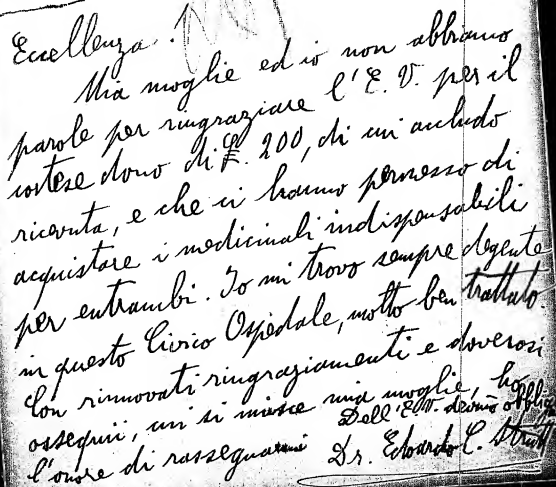 Eccellenza!
Mia moglie ed io non abbiamo
parole per ringraziare l'E. V. per il
cortese dono di £. 200, di cui accludo
ricevuta, e che ci hanno permesso di
acquistare i medicinali indispensabili
per entrambi. Io mi trovo sempre degente
in questo Civico Ospedale, molto ben trattato
Con rinnovati ringraziamenti e doverosi
ossequii, cui si unisce mia moglie, ho
l'onore di rassegnarmi
Dell'E.V. devmo obbligo
Dr. Edoardo C. Strutt